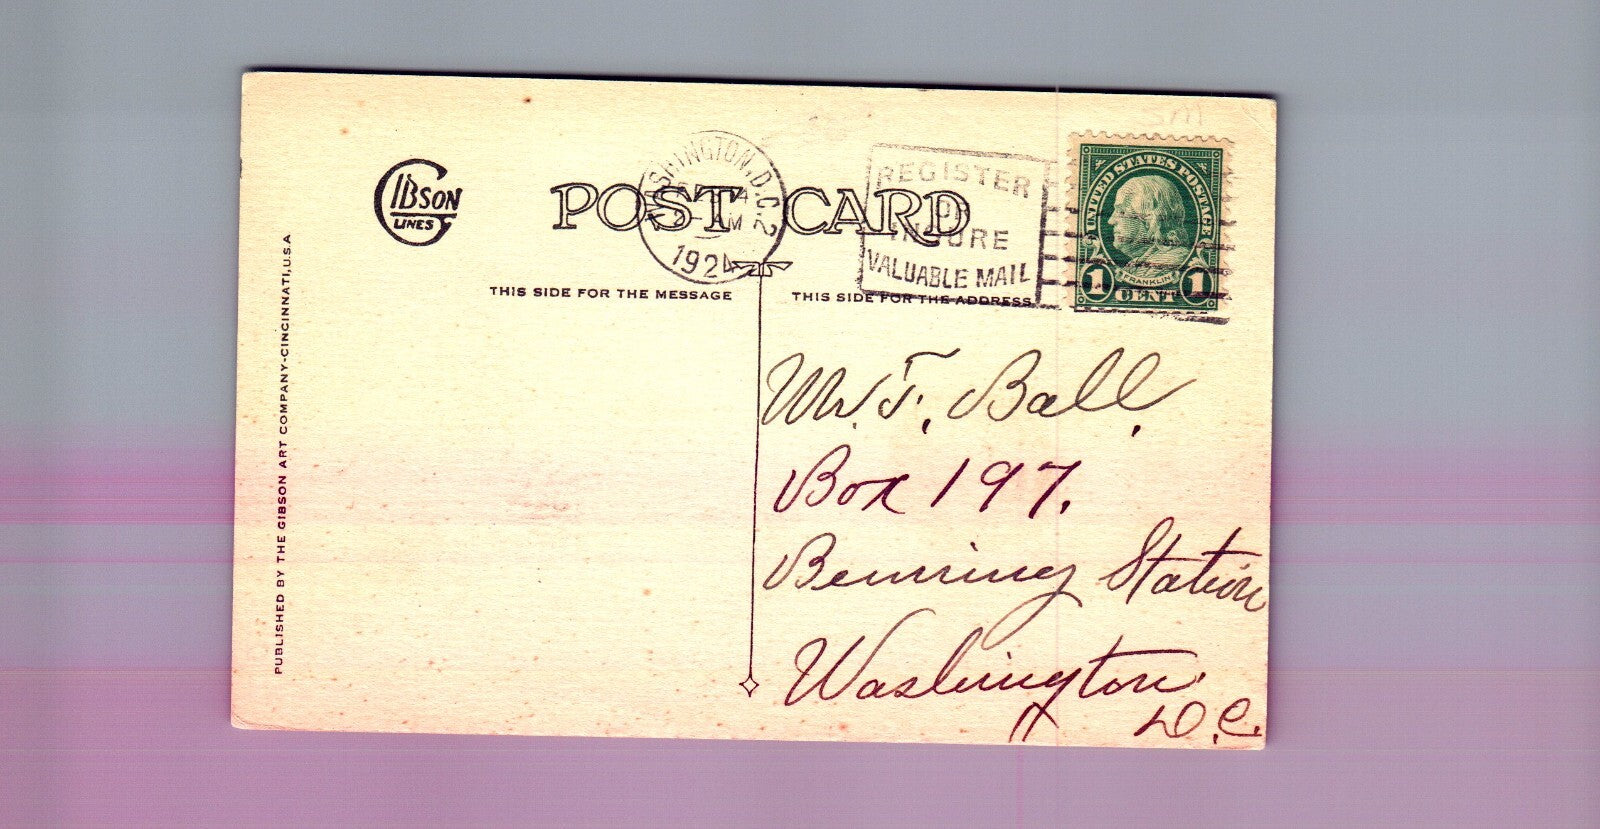 GIBSON
LINES
POST CARD
WASHINGTON, D.C. 2
AM
1924
REGISTER
OR
INSURE
VALUABLE MAIL
UNITED STATES POSTAGE
FRANKLIN
1 CENT 1
THIS SIDE FOR THE MESSAGE
THIS SIDE FOR THE ADDRESS
PUBLISHED BY THE GIBSON ART COMPANY-CINCINNATI, U.S.A
Ball.
Box 197.
Benning Station
Washington
D.C.